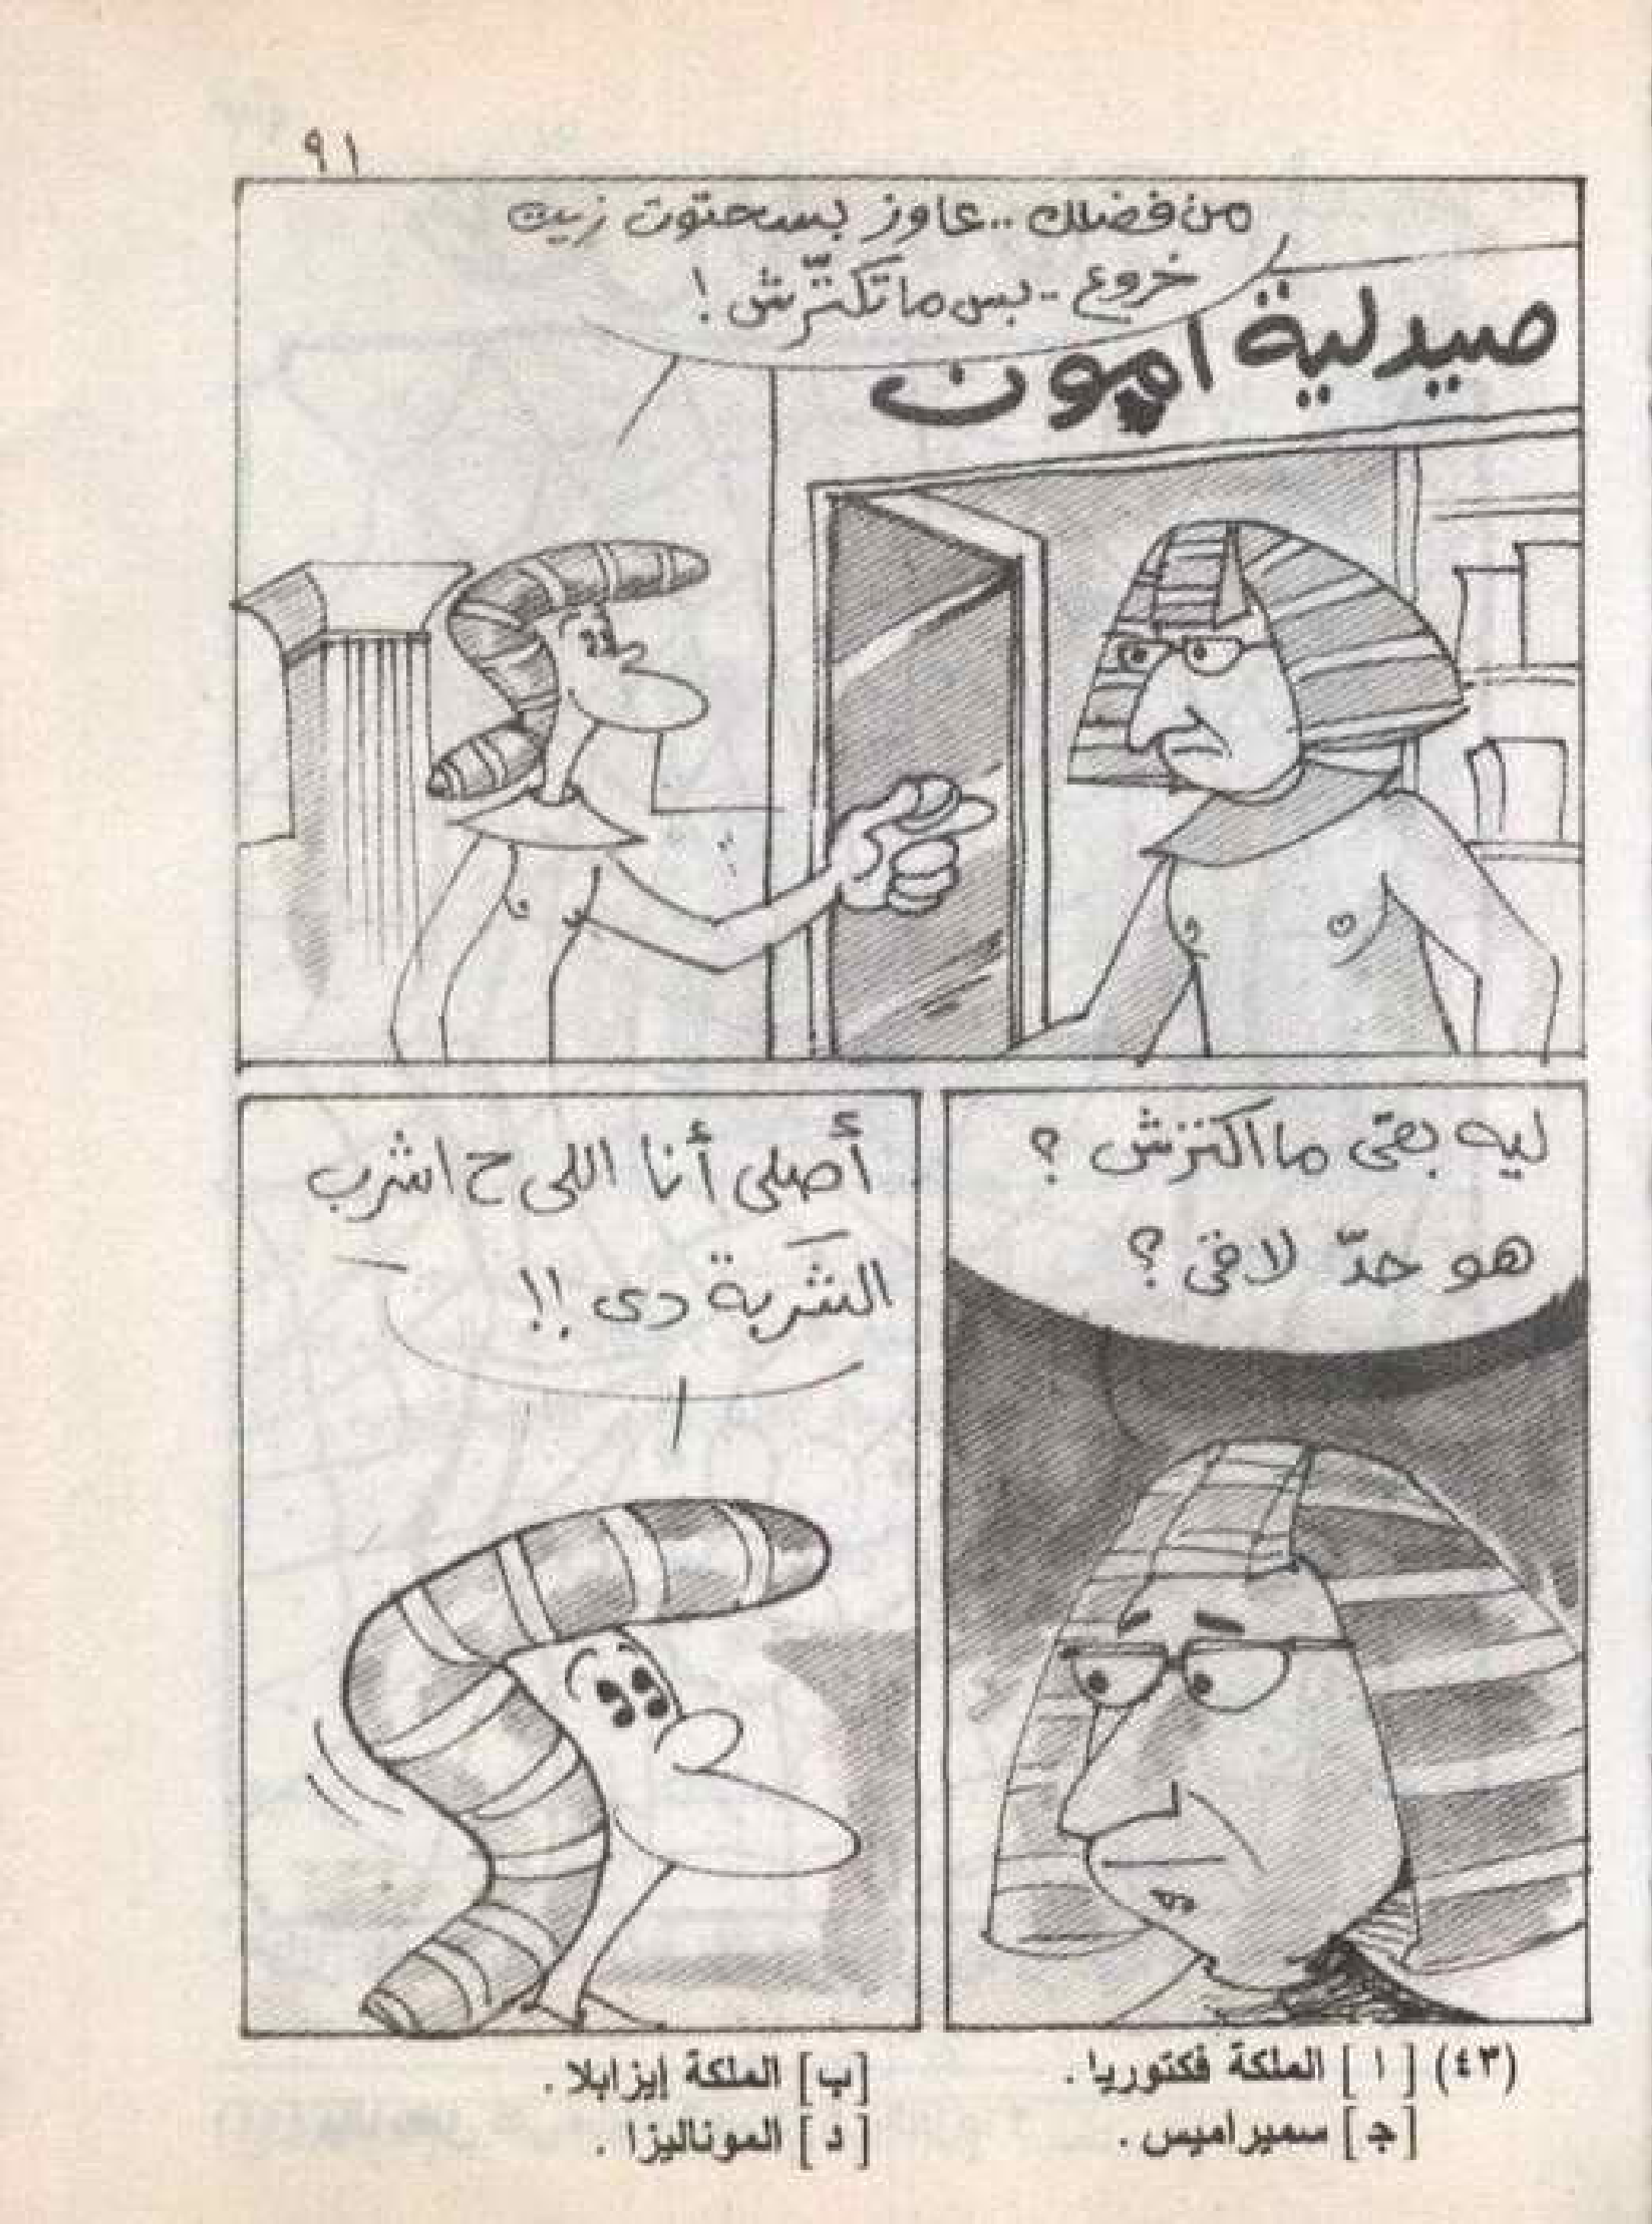 ٩١
من فضلك .. عاوز بسحتوت زيت
خروع - بس ما تكتّرش !
صيدلية آمون
ليه بقى ما اكترش ؟
هو حدّ لاقى ؟
أصلى أنا اللى ح اشرب
الشَربة دى !!
(٤٣) [ ا ] الملكة فكتوريا .
[ب] الملكة إيزابلا .
[جـ] سميراميس .
[ د ] الموناليزا .